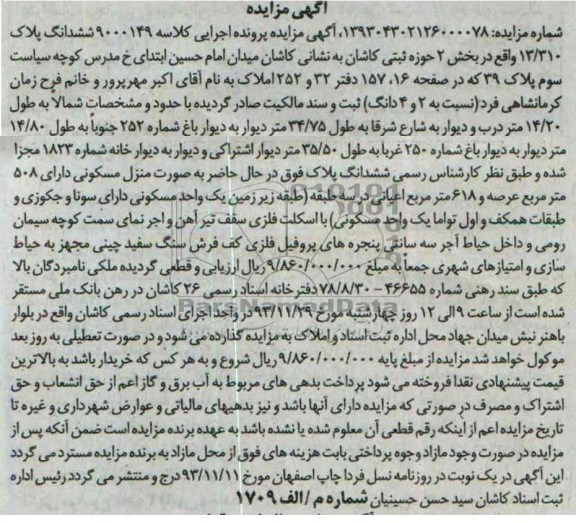 آگهی مزایده
شماره مزایده: ۱۳۹۳۰۴۳۰۲۱۲۶۰۰۰۰۷۸، آگهی مزایده پرونده اجرایی کلاسه ۹۰۰۰۱۴۹ ششدانگ پلاک
۱۳/۳۱۰ واقع در بخش ۲ حوزه ثبتی کاشان به نشانی کاشان میدان امام حسین ابتدای خ مدرس کوچه سیاست
سوم پلاک ۳۹ که در صفحه ۱۶، ۱۵۷ دفتر ۳۲ و ۲۵۲ املاک به نام آقای اکبر مهرپرور و خانم فرح زمان
کرمانشاهی فرد (نسبت به ۲ و ۴ دانگ) ثبت و سند مالکیت صادر گردیده با حدود و مشخصات شمالاً به طول
۱۴/۲۰ متر درب و دیوار به شارع شرقا به طول ۳۴/۷۵ متر دیوار به دیوار باغ شماره ۲۵۲ جنوباً به طول ۱۴/۸۰
متر دیوار به دیوار باغ شماره ۲۵۰ غرباً به طول ۳۵/۵۰ متر دیوار اشتراکی و دیوار به دیوار خانه شماره ۱۸۲۳ مجزا
شده و طبق نظر کارشناس رسمی ششدانگ پلاک فوق در حال حاضر به صورت منزل مسکونی دارای ۵۰۸
متر مربع عرصه و ۶۱۸ متر مربع اعیانی در سه طبقه (طبقه زیر زمین یک واحد مسکونی دارای سونا و جکوزی و
طبقات همکف و اول تواما یک واحد مسکونی) با اسکلت فلزی سقف تیر آهن و اجر نمای سمت کوچه سیمان
رومی و داخل حیاط آجر سه سانتی پنجره های پروفیل فلزی کف فرش سنگ سفید چینی مجهز به حیاط
سازی و امتیازهای شهری جمعاً به مبلغ ۹/۸۶۰/۰۰۰/۰۰۰ ریال ارزیابی و قطعی گردیده ملکی نامبردگان بالا
که طبق سند رهنی شماره ۴۶۶۵۵ - ۷۸/۸/۳۰ دفترخانه اسناد رسمی ۲۶ کاشان در رهن بانک ملی مستقر
شده است از ساعت ۹ الی ۱۲ روز چهارشنبه مورخ ۹۳/۱۱/۲۹ در واحد اجرای اسناد رسمی کاشان واقع در بلوار
باهنر نبش میدان جهاد محل اداره ثبت اسناد و املاک به مزایده گذارده می شود و در صورت تعطیلی به روز بعد
موکول خواهد شد مزایده از مبلغ پایه ۹/۸۶۰/۰۰۰/۰۰۰ ریال شروع و به هر کس که خریدار باشد به بالاترین
قیمت پیشنهادی نقدا فروخته می شود پرداخت بدهی های مربوط به آب برق و گاز اعم از حق انشعاب و حق
اشتراک و مصرف در صورتی که مزایده دارای آنها باشد و نیز بدهیهای مالیاتی و عوارض شهرداری و غیره تا
تاریخ مزایده اعم از اینکه رقم قطعی آن معلوم شده یا نشده باشد به عهده برنده مزایده است ضمن آنکه پس از
مزایده در صورت وجود مازاد وجوه پرداختی بابت هزینه های فوق از محل مازاد به برنده مزایده مسترد می گردد
این آگهی در یک نوبت در روزنامه نسل فردا چاپ اصفهان مورخ ۹۳/۱۱/۱۱ درج و منتشر می گردد رئیس اداره
ثبت اسناد کاشان سید حسن حسینیان شماره م / الف ۱۷۰۹